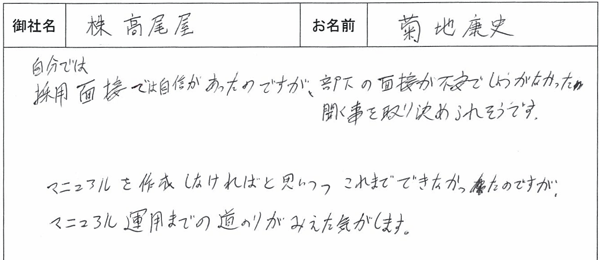 御社名 株 高尾屋 お名前 菊地康史
自分では
採用面接では自信があったのですが、部下の面接が不安でしょうがなかった
聞く事を取り決められそうです。
マニュアルを作成しなければと思いつつ これまでできなかったのですが、
マニュアル運用までの道のりがみえた気がします。